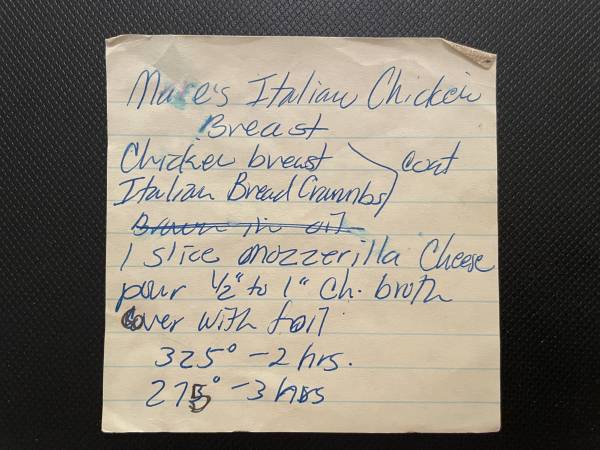 Mare's Italian Chicken
Breast
Chicken breast
Italian Bread Crumbs } coat
Brown in oil
1 slice mozzerilla Cheese
pour 1/2" to 1" Ch. broth
Cover with foil
325° - 2 hrs.
275° - 3 hrs